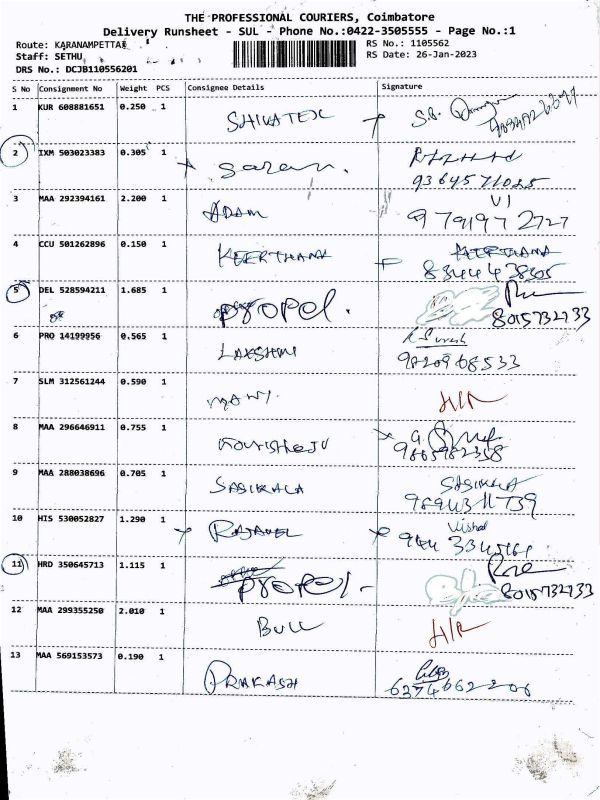 THE PROFESSIONAL COURIERS, Coimbatore
Delivery Runsheet - SUL - Phone No.:0422-3505555 - Page No.:1
Route: KARANAMPETTAI
RS No.: 1105562
Staff: SETHU
RS Date: 26-Jan-2023
DRS No.: DCJB110556201
S No Consignment No Weight PCS Consignee Details Signature
1 KUR 608881651 0.250 1 SHIVATEX S.B.
2 IXM 503023383 0.305 1 Saran.
9364571025
3 MAA 292394161 2.200 1 ADAM VI
9791972727
4 CCU 501262896 0.150 1 KEERTHANA KEERTHANA
5 DEL 528594211 1.685 1 propel.
8015732733
6 PRO 14199956 0.565 1 LAKSHMI R Suresh
9820968533
7 SLM 312561244 0.590 1 MANI H/R
8 MAA 296646911 0.755 1
9865982358
9 MAA 288038696 0.705 1 SASIKALA SASIKALA
9894311739
10 HIS 530052827 1.290 1 RAJAVEL Vishal
11 HRD 350645713 1.115 1 propel-
8015732733
12 MAA 299355250 2.010 1 BULL H/R
13 MAA 569153573 0.190 1 PRAKASH
6374662206